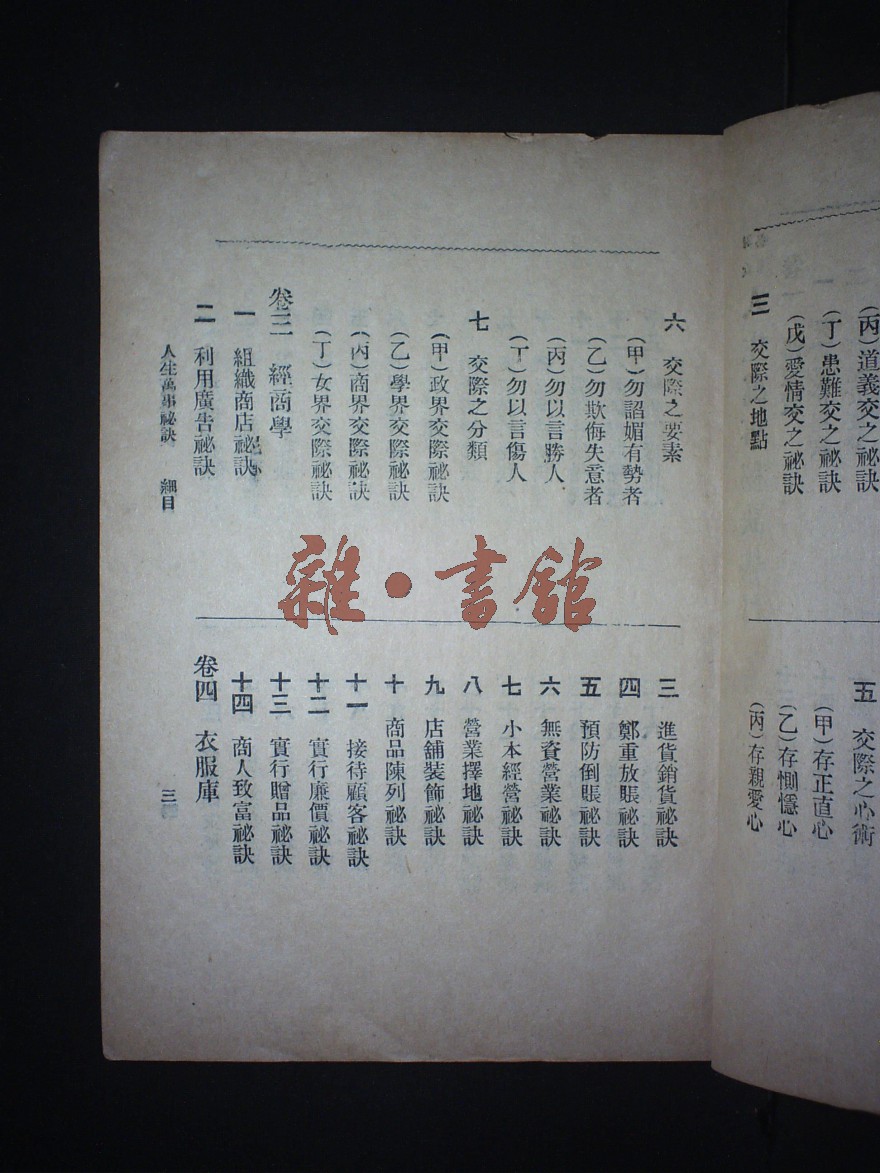 (丙)道義交之祕訣
(丁)患難交之祕訣
(戊)愛情交之祕訣
三 交際之地點
五 交際之心術
(甲)存正直心
(乙)存惻隱心
(丙)存親愛心
六 交際之要素
(甲)勿諂媚有勢者
(乙)勿欺侮失意者
(丙)勿以言勝人
(丁)勿以言傷人
七 交際之分類
(甲)政界交際祕訣
(乙)學界交際祕訣
(丙)商界交際祕訣
(丁)女界交際祕訣
卷三 經商學
一 組織商店祕訣
二 利用廣告祕訣
三 進貨銷貨祕訣
四 鄭重放賬祕訣
五 預防倒賬祕訣
六 無資營業祕訣
七 小本經營祕訣
八 營業擇地祕訣
九 店舖裝飾祕訣
十 商品陳列祕訣
十一 接待顧客祕訣
十二 實行廉價祕訣
十三 實行贈品祕訣
十四 商人致富祕訣
卷四 衣服庫
人生萬事祕訣 細目 三
雜·書館